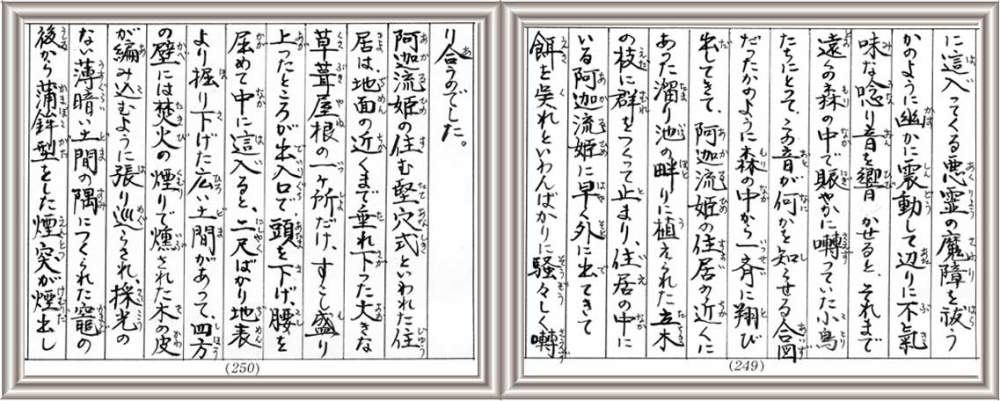 に這入ってくる悪霊の魔障を祓う
かのように幽かに震動して辺りに不氣
味な唸り音を響かせると、それまで
遠くの森の中で賑やかに囀っていた小鳥
たちにとってこの音が何かを知らせる合図
だったかのように森の中から一斉に翔び
出してきて、阿迦流姫の住居の近くに
あった溜り池の畔りに植えられた立木
の枝に群をつくって止まり、住居の中に
いる阿迦流姫に早く外に出てきて
餌を呉れといわんばかりに騒々しく囀
(249)
り合うのでした。
阿迦流姫の住む堅穴式といわれた住
居は、地面の近くまで垂れ下った大きな
草葺屋根の一ヶ所だけ、すこし盛り
上ったところが出入口で、頭を下げ腰を
屈めて中に這入ると、二尺ばかり地表
より掘り下げた広い土間があって、四方
の壁には焚火の煙りで燻された木の皮
が編み込むように張り巡らされ、採光の
ない薄暗い土間の隅につくられた竈の
後から蒲鉾型をした煙突が煙出し
(250)